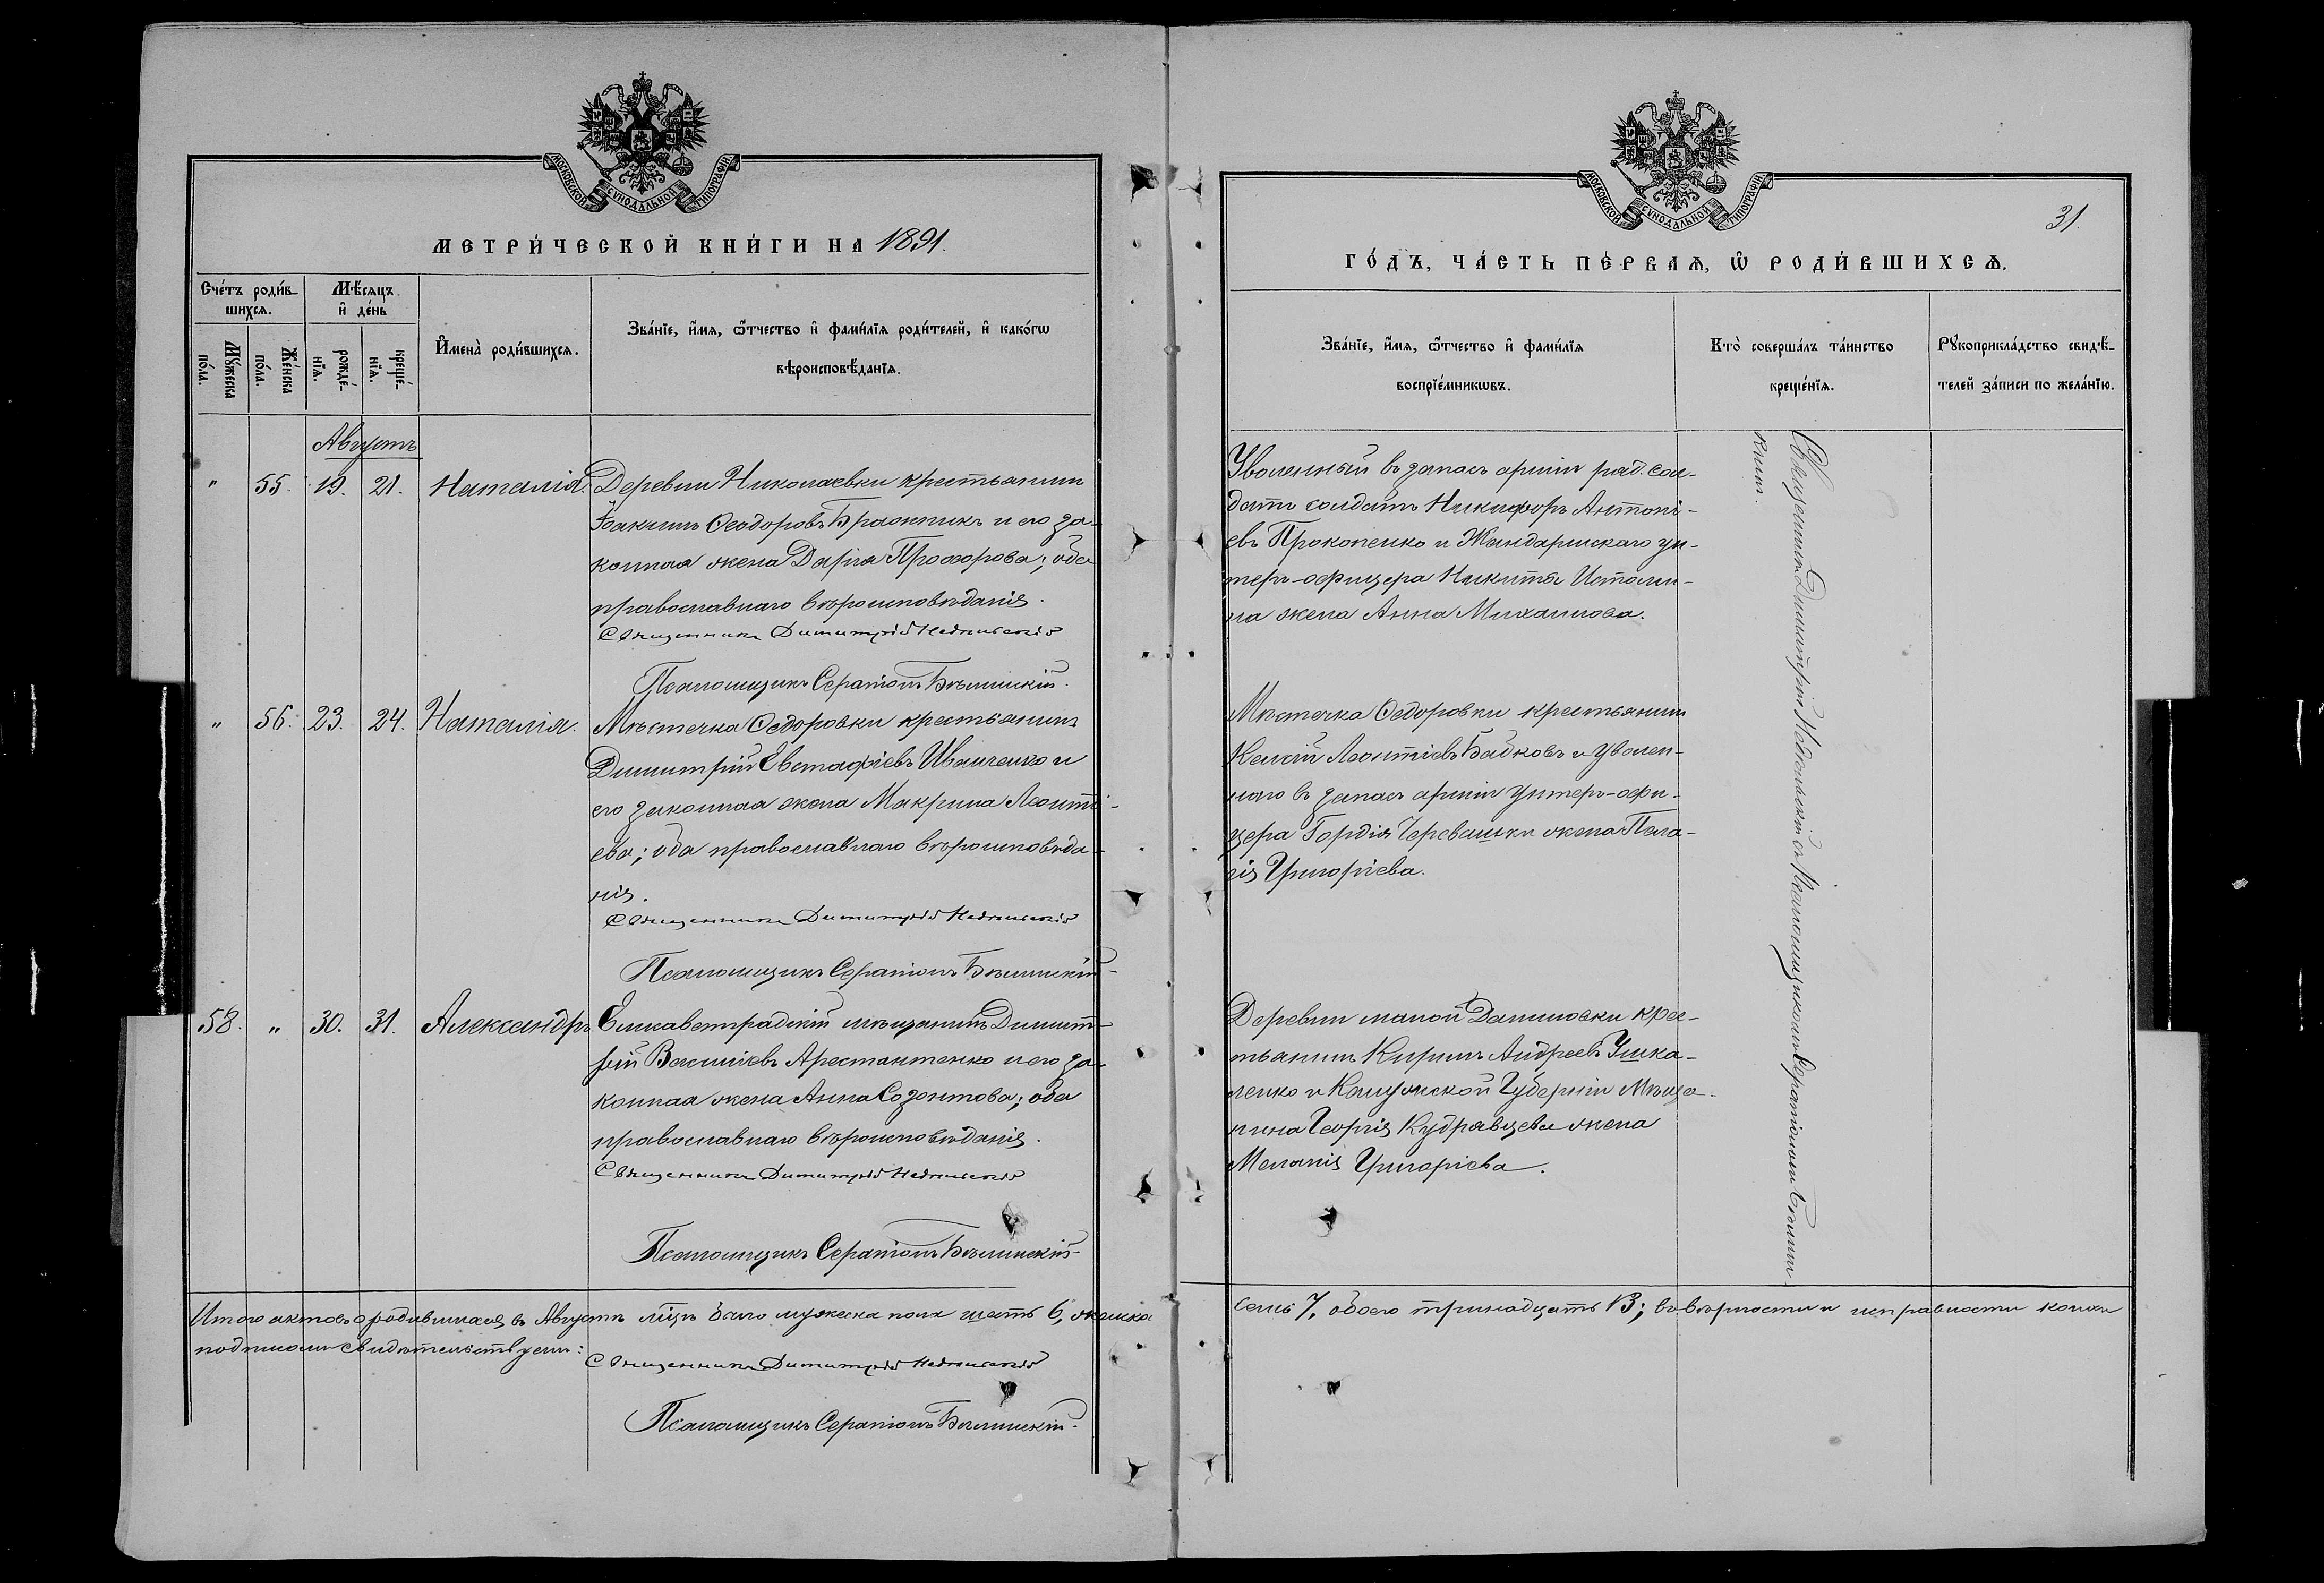 МОСКОВСКОЙ СУНОДАЛЬНОЙ ТИПОГРАФІИ
МЕТРИ́ЧЕСКОЙ КНИ́ГИ НА 1891.
Сче́тъ роди́в-
шихся.
Мѣ́сяцъ
и҆ де́нь
И҆мена̀ роди́вшихся.
Зва́нїе, и҆́мя, ѻ҆́тчество и҆ фами́лїя роди́телей, и҆ како́гѡ
вѣроисповѣ́данїя.
Мꙋ́жеска
по́ла.
Же́нска
по́ла.
рожде́-
нїя.
креще́-
нїя.
Августъ
" 55. 19. 21. Наталія.
Деревни Николаевки крестьянинъ
Іоакимъ Ѳеодоровъ Бражникъ и его за-
конная жена Дарія Прохорова; оба
православнаго вѣроисповѣданія.
Священникъ Димитрій
Псаломщикъ Серапіонъ Бѣлинскій.
" 56. 23. 24. Наталія.
Мѣстечка Ѳедоровки крестьянинъ
Димитрій Евстафіевъ Иванченко и
его законная жена Макрина Леонті-
ева; оба православнаго вѣроисповѣда-
нія.
Священникъ Димитрій
Псаломщикъ Серапіонъ Бѣлинскій
58. " 30. 31. Александръ
Елисаветградскій мѣщанинъ Димит-
рій Васильевъ Арестантенко и его за-
конная жена Анна Созонтова; оба
православнаго вѣроисповѣданія.
Священникъ Димитрій
Псаломщикъ Серапіонъ Бѣлинскій
Итого актовъ о родившихся въ Августѣ мѣсяцѣ было мужеска пола шесть 6, женска
подписомъ свидѣтельствуемъ:
Священникъ Димитрій
Псаломщикъ Серапіонъ Бѣлинскій.
МОСКОВСКОЙ СУНОДАЛЬНОЙ ТИПОГРАФІИ
31.
ГО́ДЪ, ЧА́СТЬ ПЕ́РВАЯ, Ѡ҆ РОДИ́ВШИХСЯ.
Зва́нїе, и҆́мя, ѻ҆́тчество и҆ фами́лїя
воспрїе́мникѡвъ.
Кто̀ соверша́лъ та́инство
креще́нїя.
Рꙋкоприкла́дство свидѣ́-
телей за́писи по жела́нїю.
Уволенный въ запасъ арміи ряд. сол-
датъ солдатъ Никифоръ Антоні-
евъ Прокопенко и Жандармскаго ун-
теръ-офицера Никиты Истоми-
на жена Анна Михаилова.
Мѣстечка Ѳедоровки крестьянинъ
Леонтіевъ Байковъ и уволен-
наго въ запасъ арміи унтеръ-офи-
цера Гордія Черевашки жена Пела-
гія Григоріева.
Деревни малой Даниловки крес-
тьянинъ Кириллъ Андреевъ Ушка-
ленко и Калужской Губерніи Мѣща-
нина Георгія Кудрявцева жена
Меланія Григоріева.
Священникъ Димитрій съ Псаломщикомъ Серапіономъ Бѣлин-
скимъ.
семь 7, обоего тринадцать 13; въ вѣрности и исправности коихъ